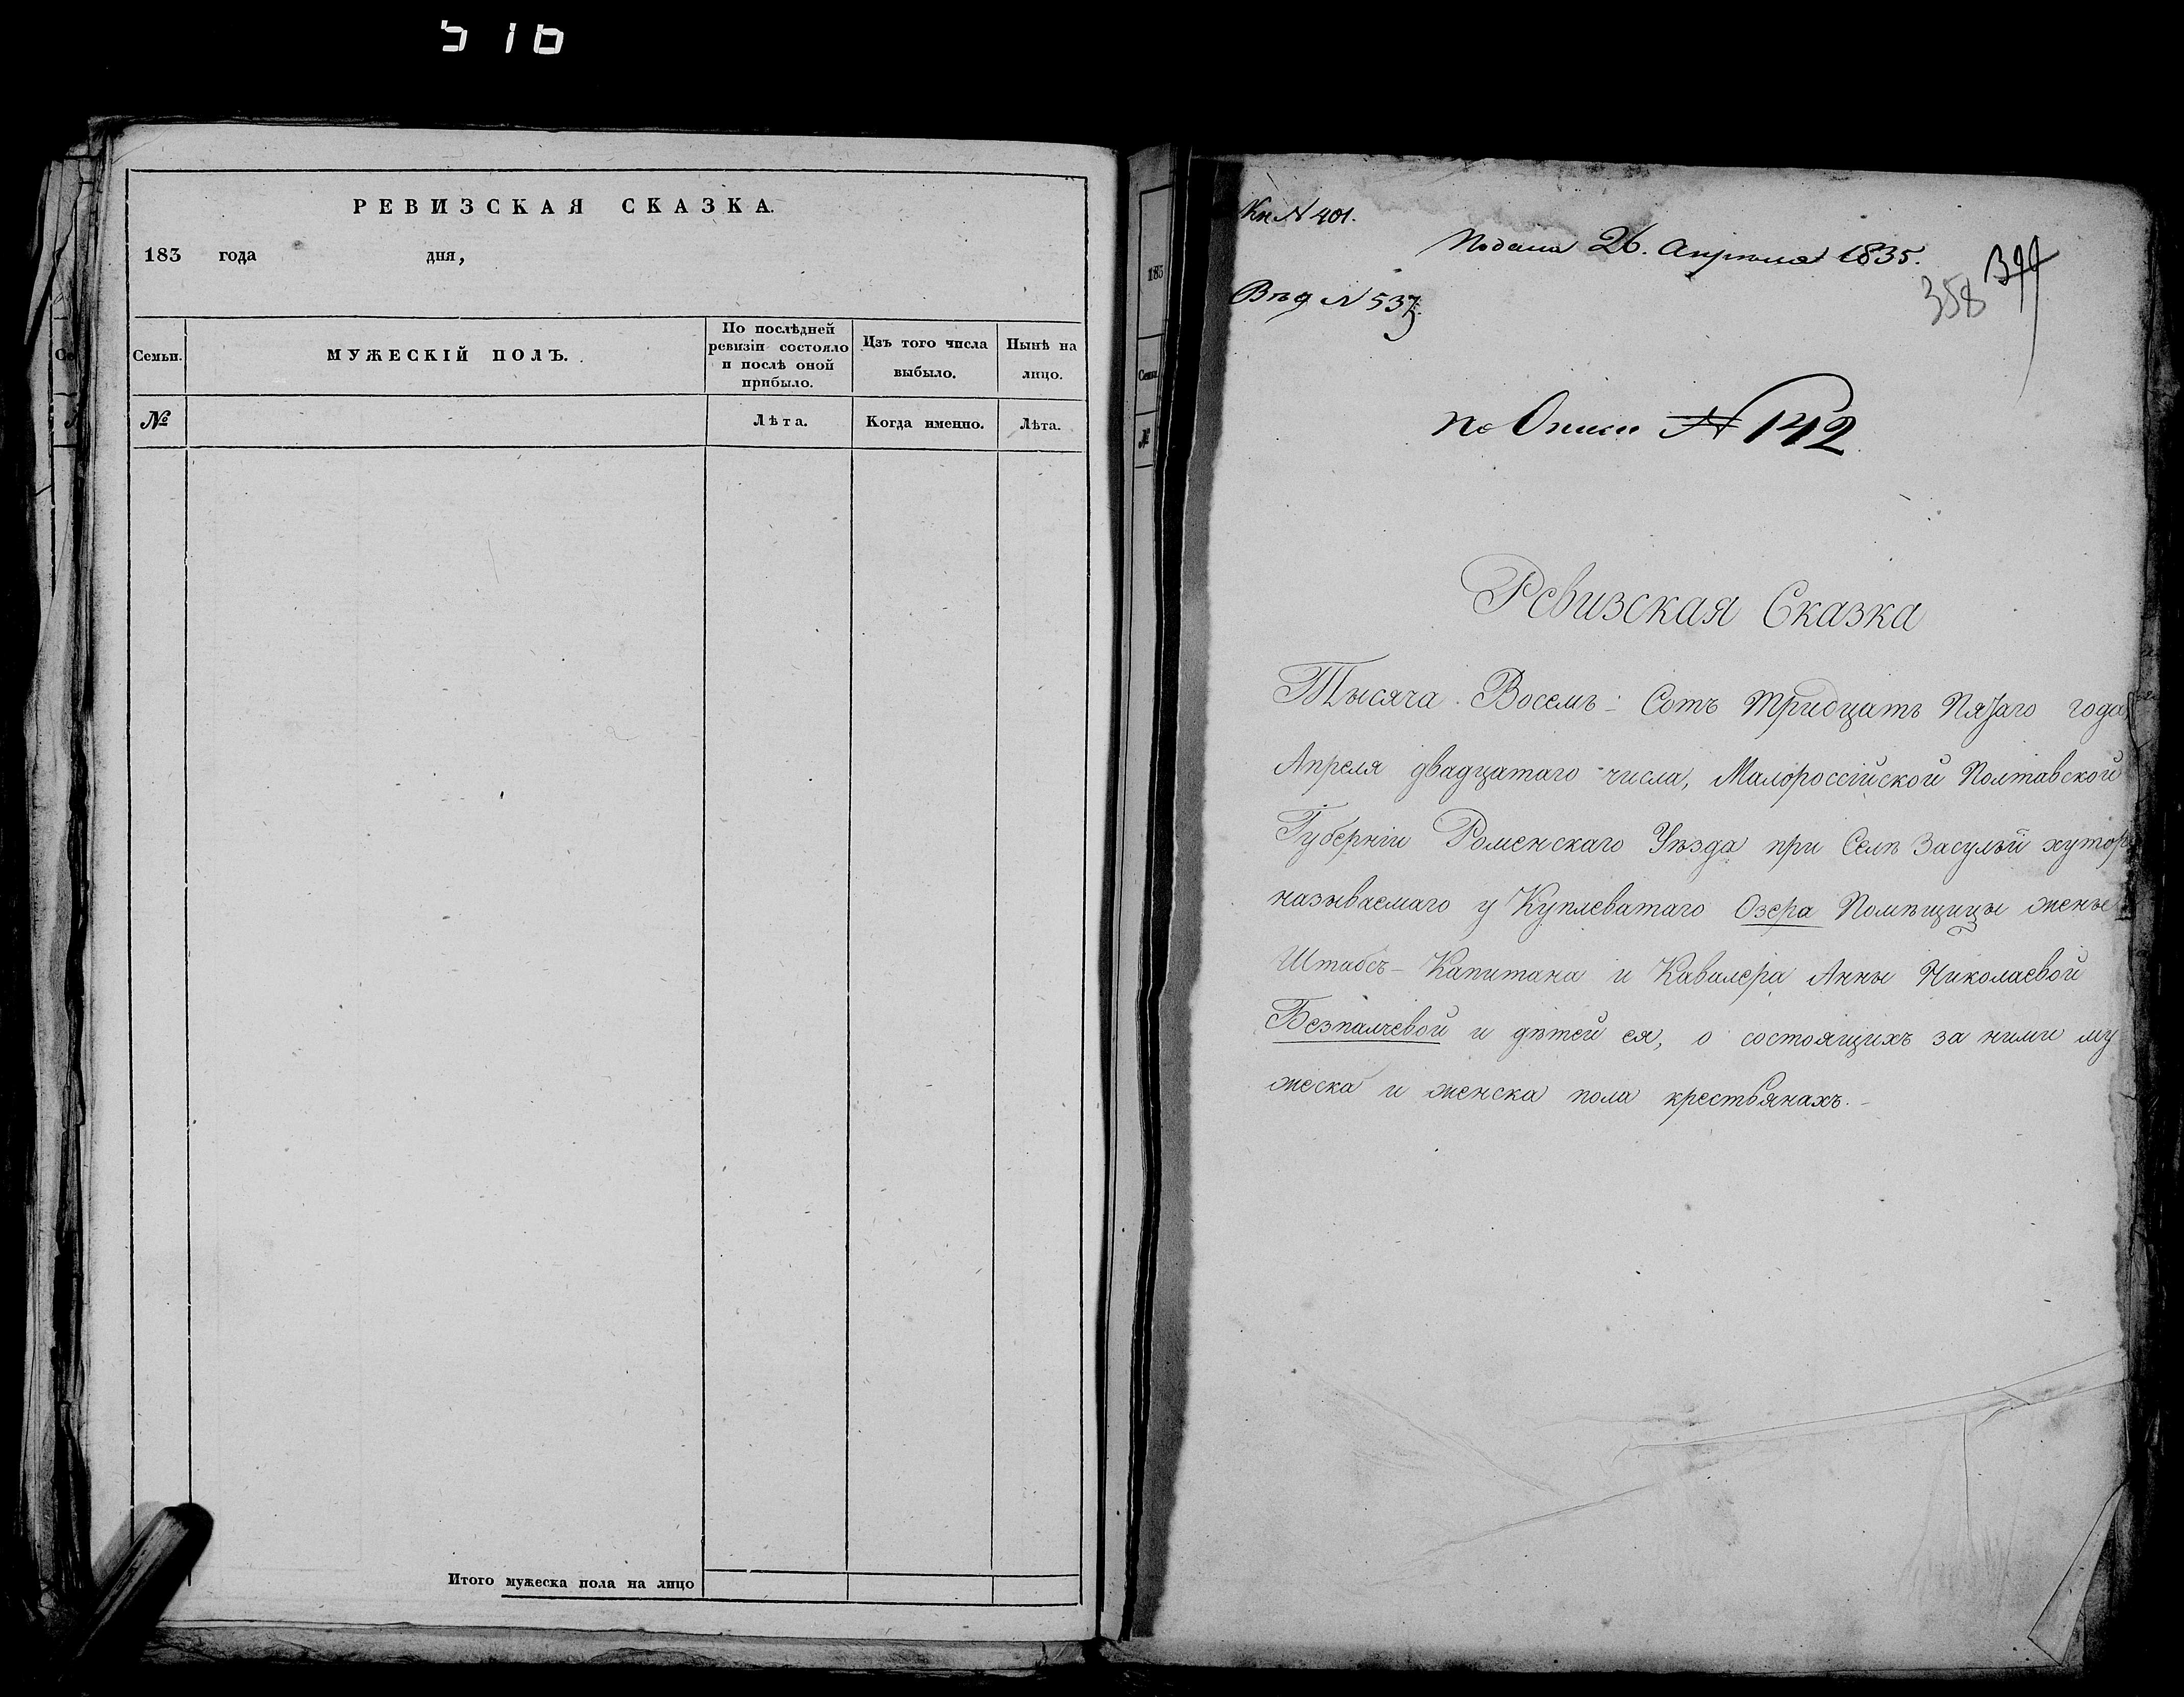 516
РЕВИЗСКАЯ СКАЗКА.
183 года дня,
Семьи.
МУЖЕСКІЙ ПОЛЪ.
По послѣдней ревизіи состояло и послѣ оной прибыло.
Изъ того числа выбыло.
Нынѣ на лицо.
№
Лѣта.
Когда именно.
Лѣта.
Итого мужеска пола на лицо
183
№
Кн N 401.
Подана 26. Апрѣля 1835.
358
Вѣд N 537.
по Описи N 142
Ревизская Сказка
Тысяча Восемь-Сотъ тридцать Пятаго года
Апреля двадцатаго числа, Малороссійской Полтавской
Губерніи Роменскаго Уѣзда при Селѣ Засульи хутор
называемаго у Куплеватаго Озера Помѣщицы жены
Штабсъ-Капитана и Кавалера Анны Николаевой
Безпалчевой и дѣтей ея, о состоящихъ за ними му
жеска и женска пола крестьянахъ.-